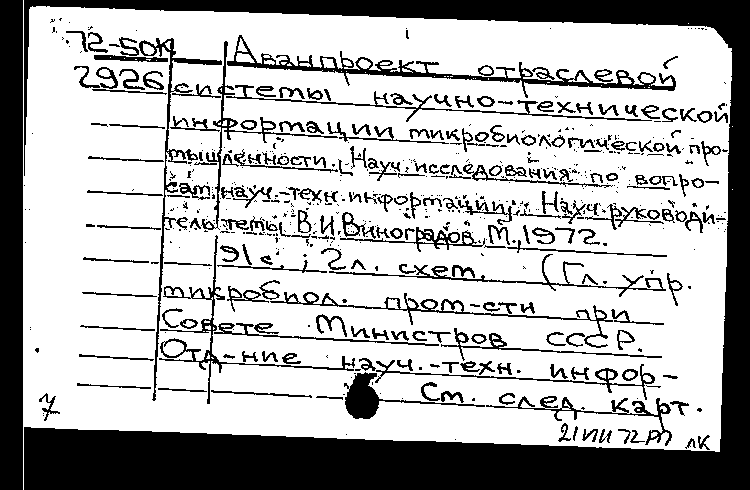 72-50К Аванпроект отраслевой
2926 системы научно-технической
информации микробиологической про-
мышленности. [Науч. исследования по вопро-
сам науч.-техн. информации; Науч. руководи-
тель темы В.И. Виноградов. М., 1972.
91 с.; 2 л. схем. (Гл. упр.
микробиол. пром-сти при
Совете Министров СССР.
Отд-ние науч.-техн. инфор-
См. след. карт.
7
лК